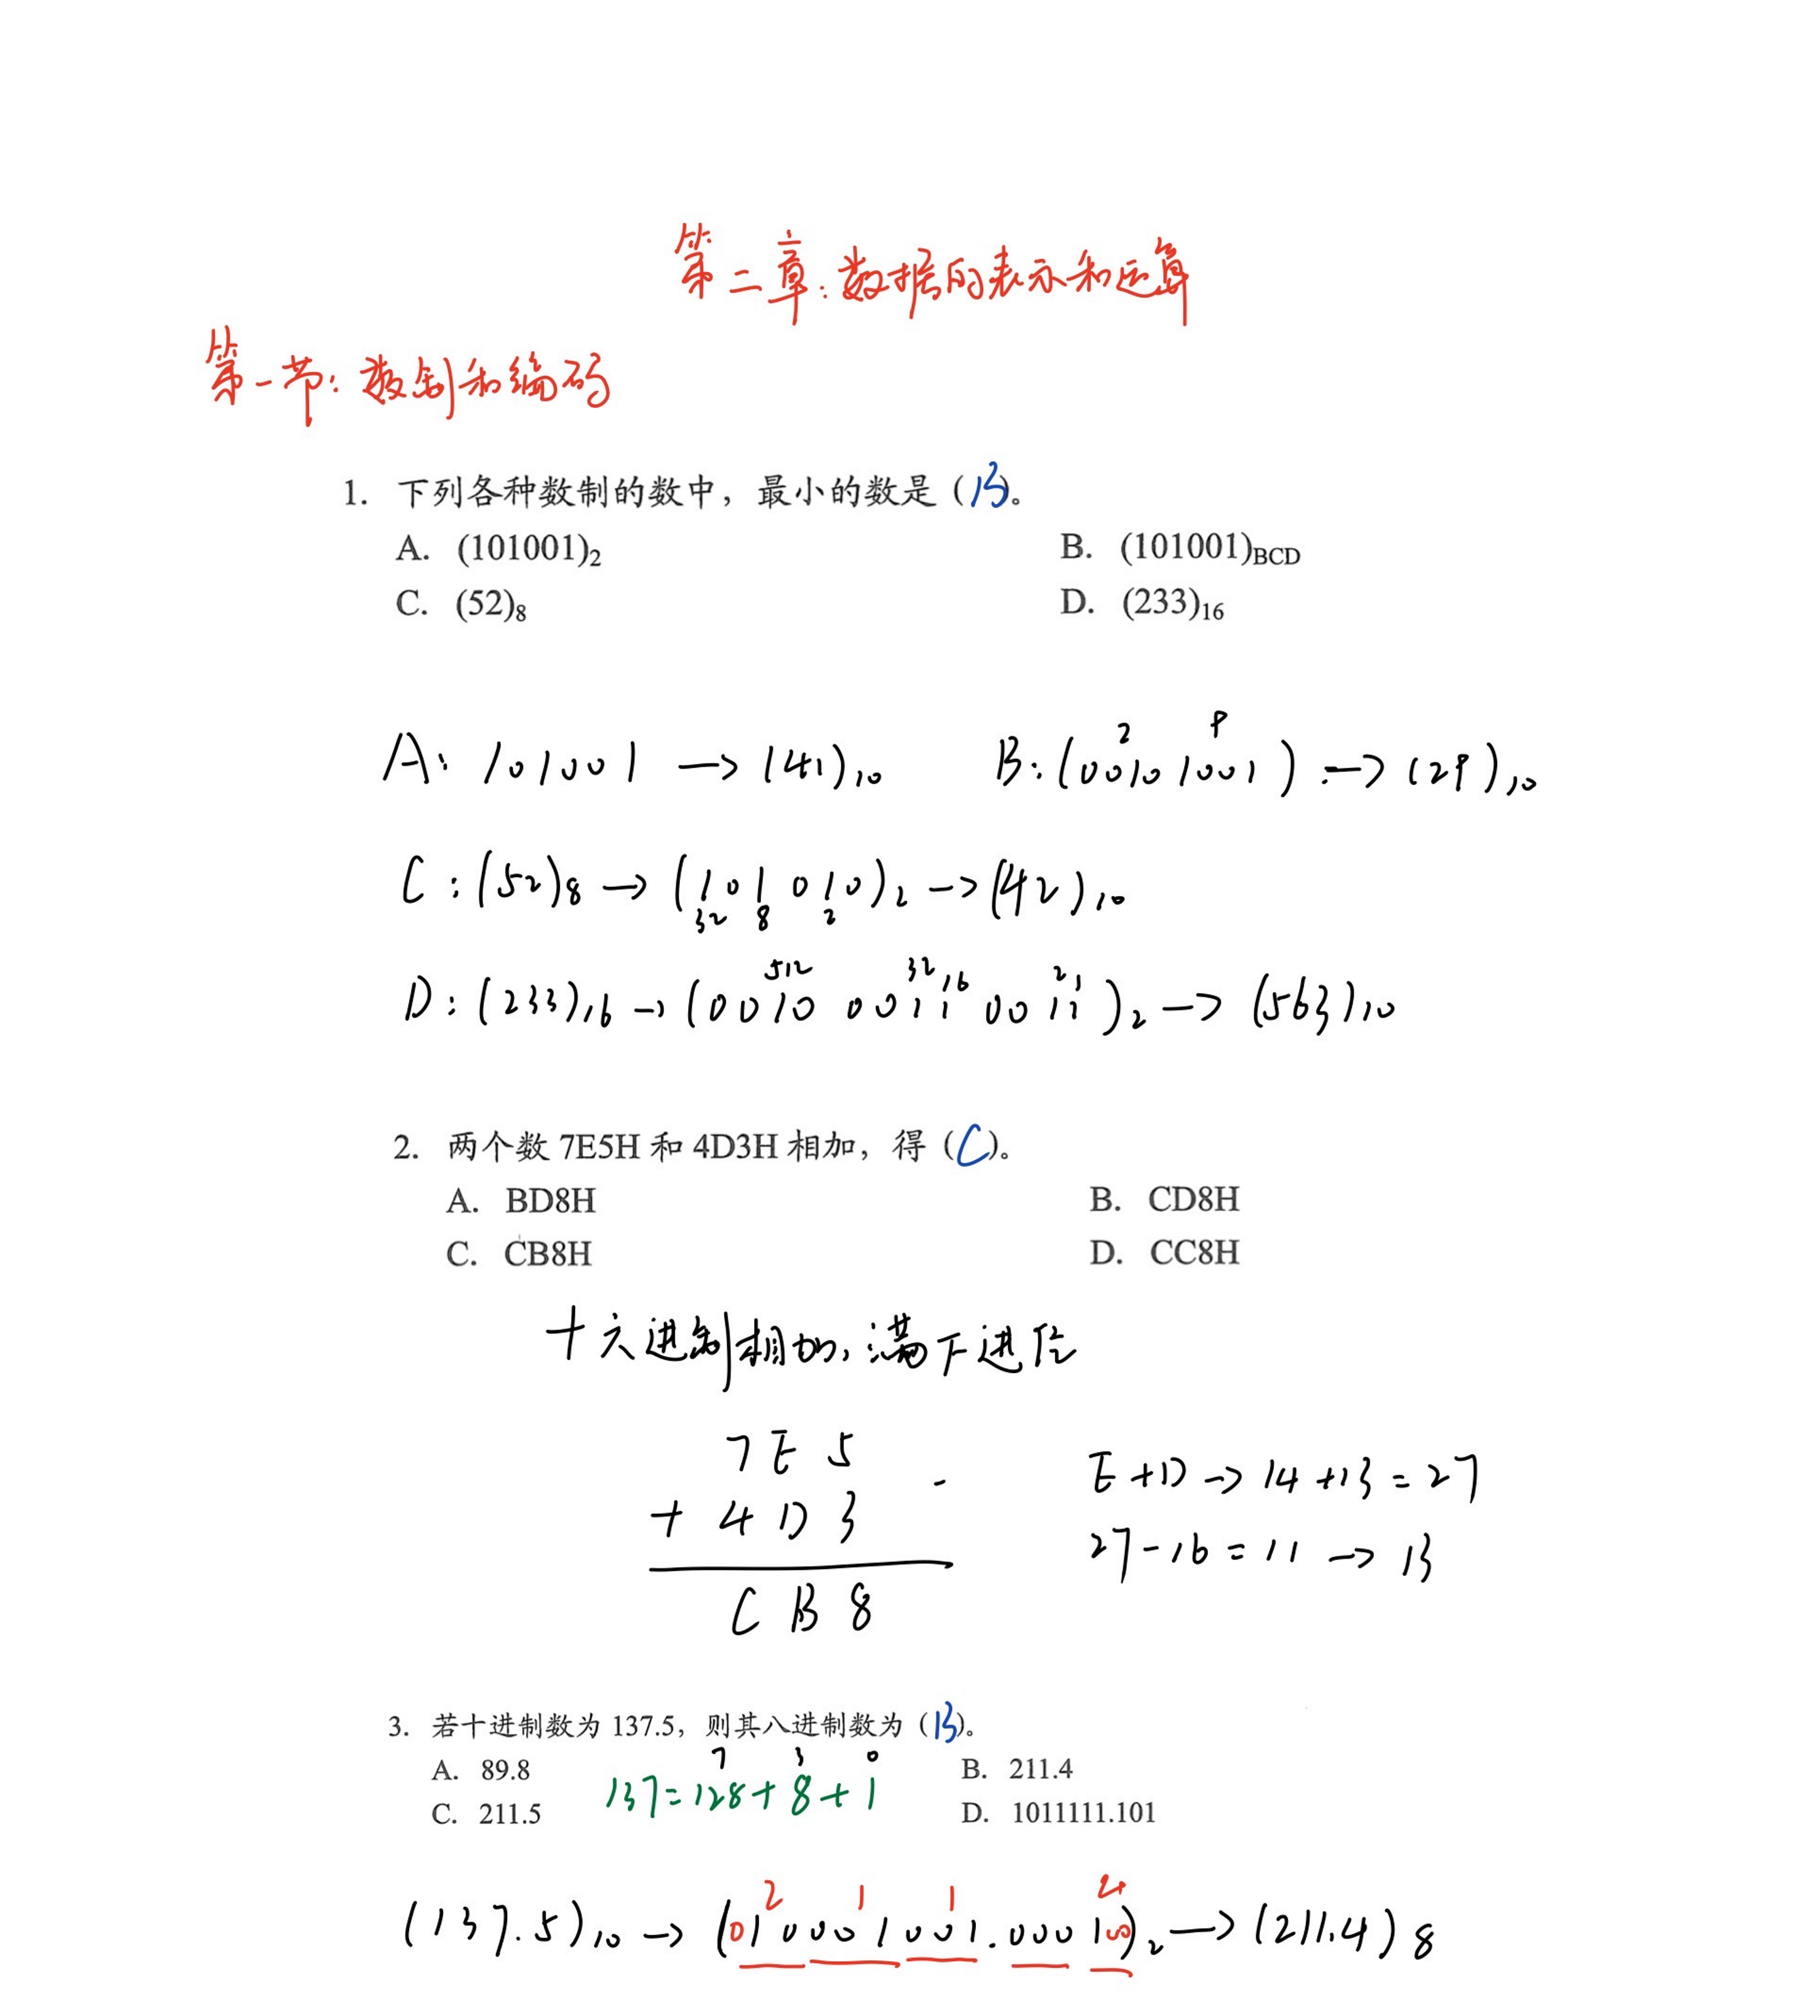 第二章：数据的表示和运算
第一节：数制和编码
1. 下列各种数制的数中，最小的数是（B）。
A. (101001)₂ B. (101001)BCD
C. (52)₈ D. (233)₁₆
2 9
A: 101001 → (41)₁₀ B: (0010 1001) → (29)₁₀
C: (52)₈ → (101 010)₂ → (42)₁₀
32 8 2
512 32 16 2 1
D: (233)₁₆ → (0010 0011 0011)₂ → (563)₁₀
2. 两个数 7E5H 和 4D3H 相加，得（C）。
A. BD8H B. CD8H
C. CB8H D. CC8H
十六进制相加，满下进位
7 E 5
+ 4 D 3
C B 8
E + D → 14 + 13 = 27
27 - 16 = 11 → B
3. 若十进制数为 137.5，则其八进制数为（B）。
A. 89.8 B. 211.4
7 3 0
137 = 128 + 8 + 1
C. 211.5 D. 1011111.101
2 1 1 4
(137.5)₁₀ → (010 001 001.000 100)₂ → (211.4)₈